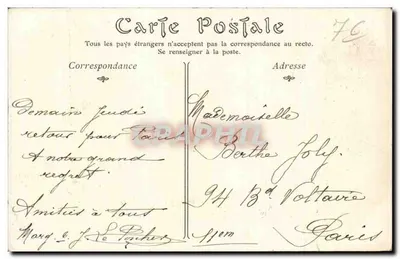 76
Carte Postale
Tous les pays étrangers n'acceptent pas la correspondance au recto.
Se renseigner à la poste.
Correspondance
Adresse
Demain Jeudi
retour pour Paris
A notre grand
regret.
Amitiés à tous
Marg & J. Le
Mademoiselle
Berthe Joly
94 Bd Voltaire
11em
Paris